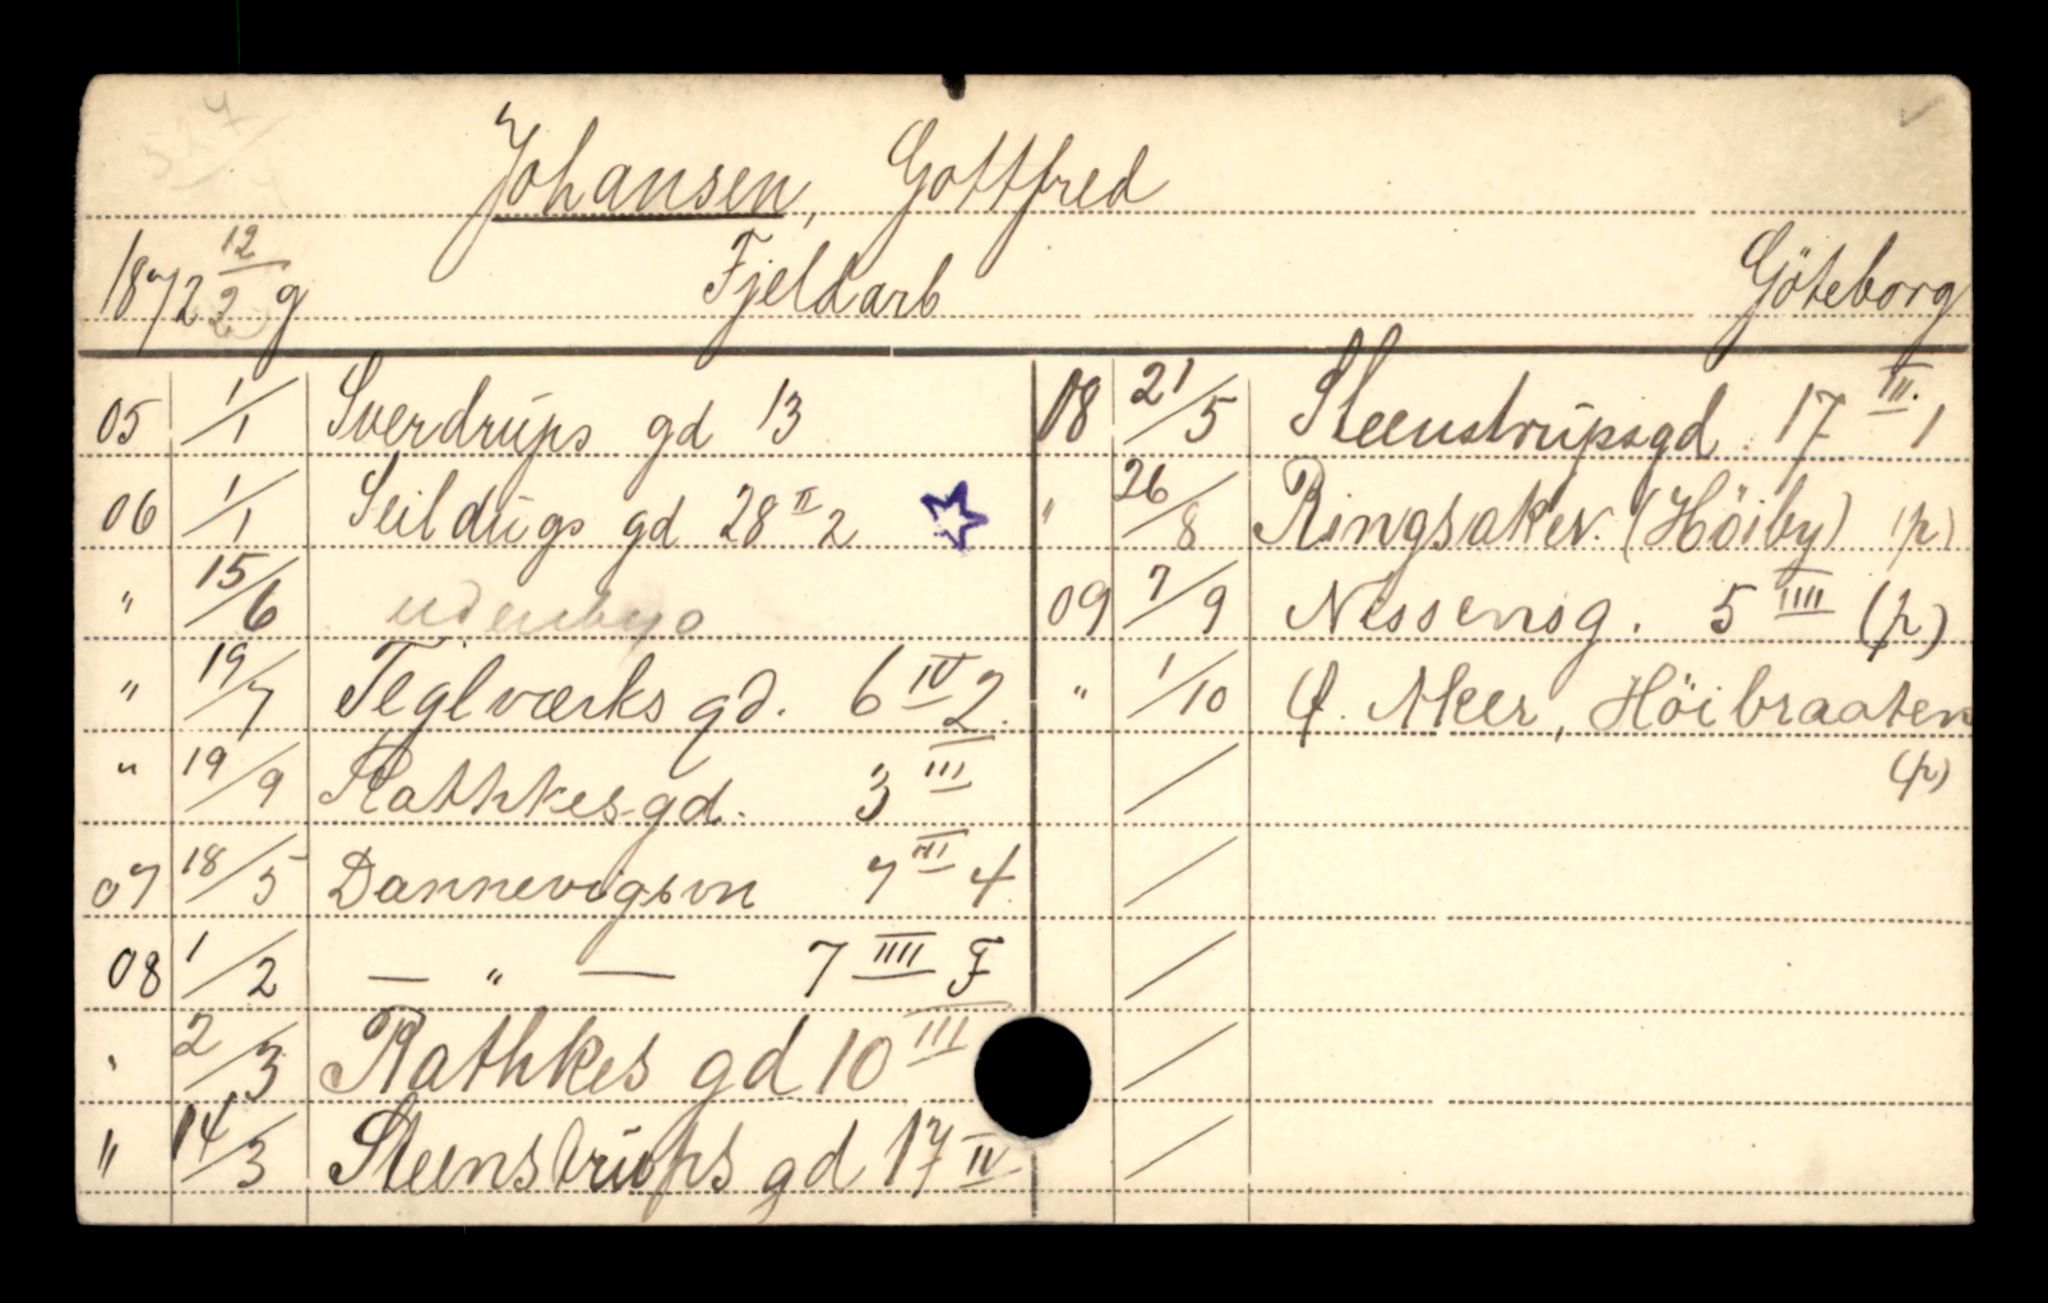 Johansen, Gottfred
1872 12/2 g Fjeldarb Göteborg
05 1/1 Sverdrups gd 13
06 1/1 Seildugs gd 28 II 2
" 15/6 udenbys
" 19/7 Teglværks gd. 6 IV 2.
" 19/9 Rathkes gd. 3 III
07 18/5 Dannevigsvn 7 III 4.
08 1/2 — " — 7 IIII F
" 2/3 Rathkes gd 10 III
" 14/3 Steenstrups gd 17 IV
08 21/5 Steenstrupsgd. 17 III. 1
" 26/8 Ringsaker. (Höiby) (p)
09 7/9 Nissensg. 5 IIII (p)
" 1/10 Ø. Aker, Höibraaten
(p)